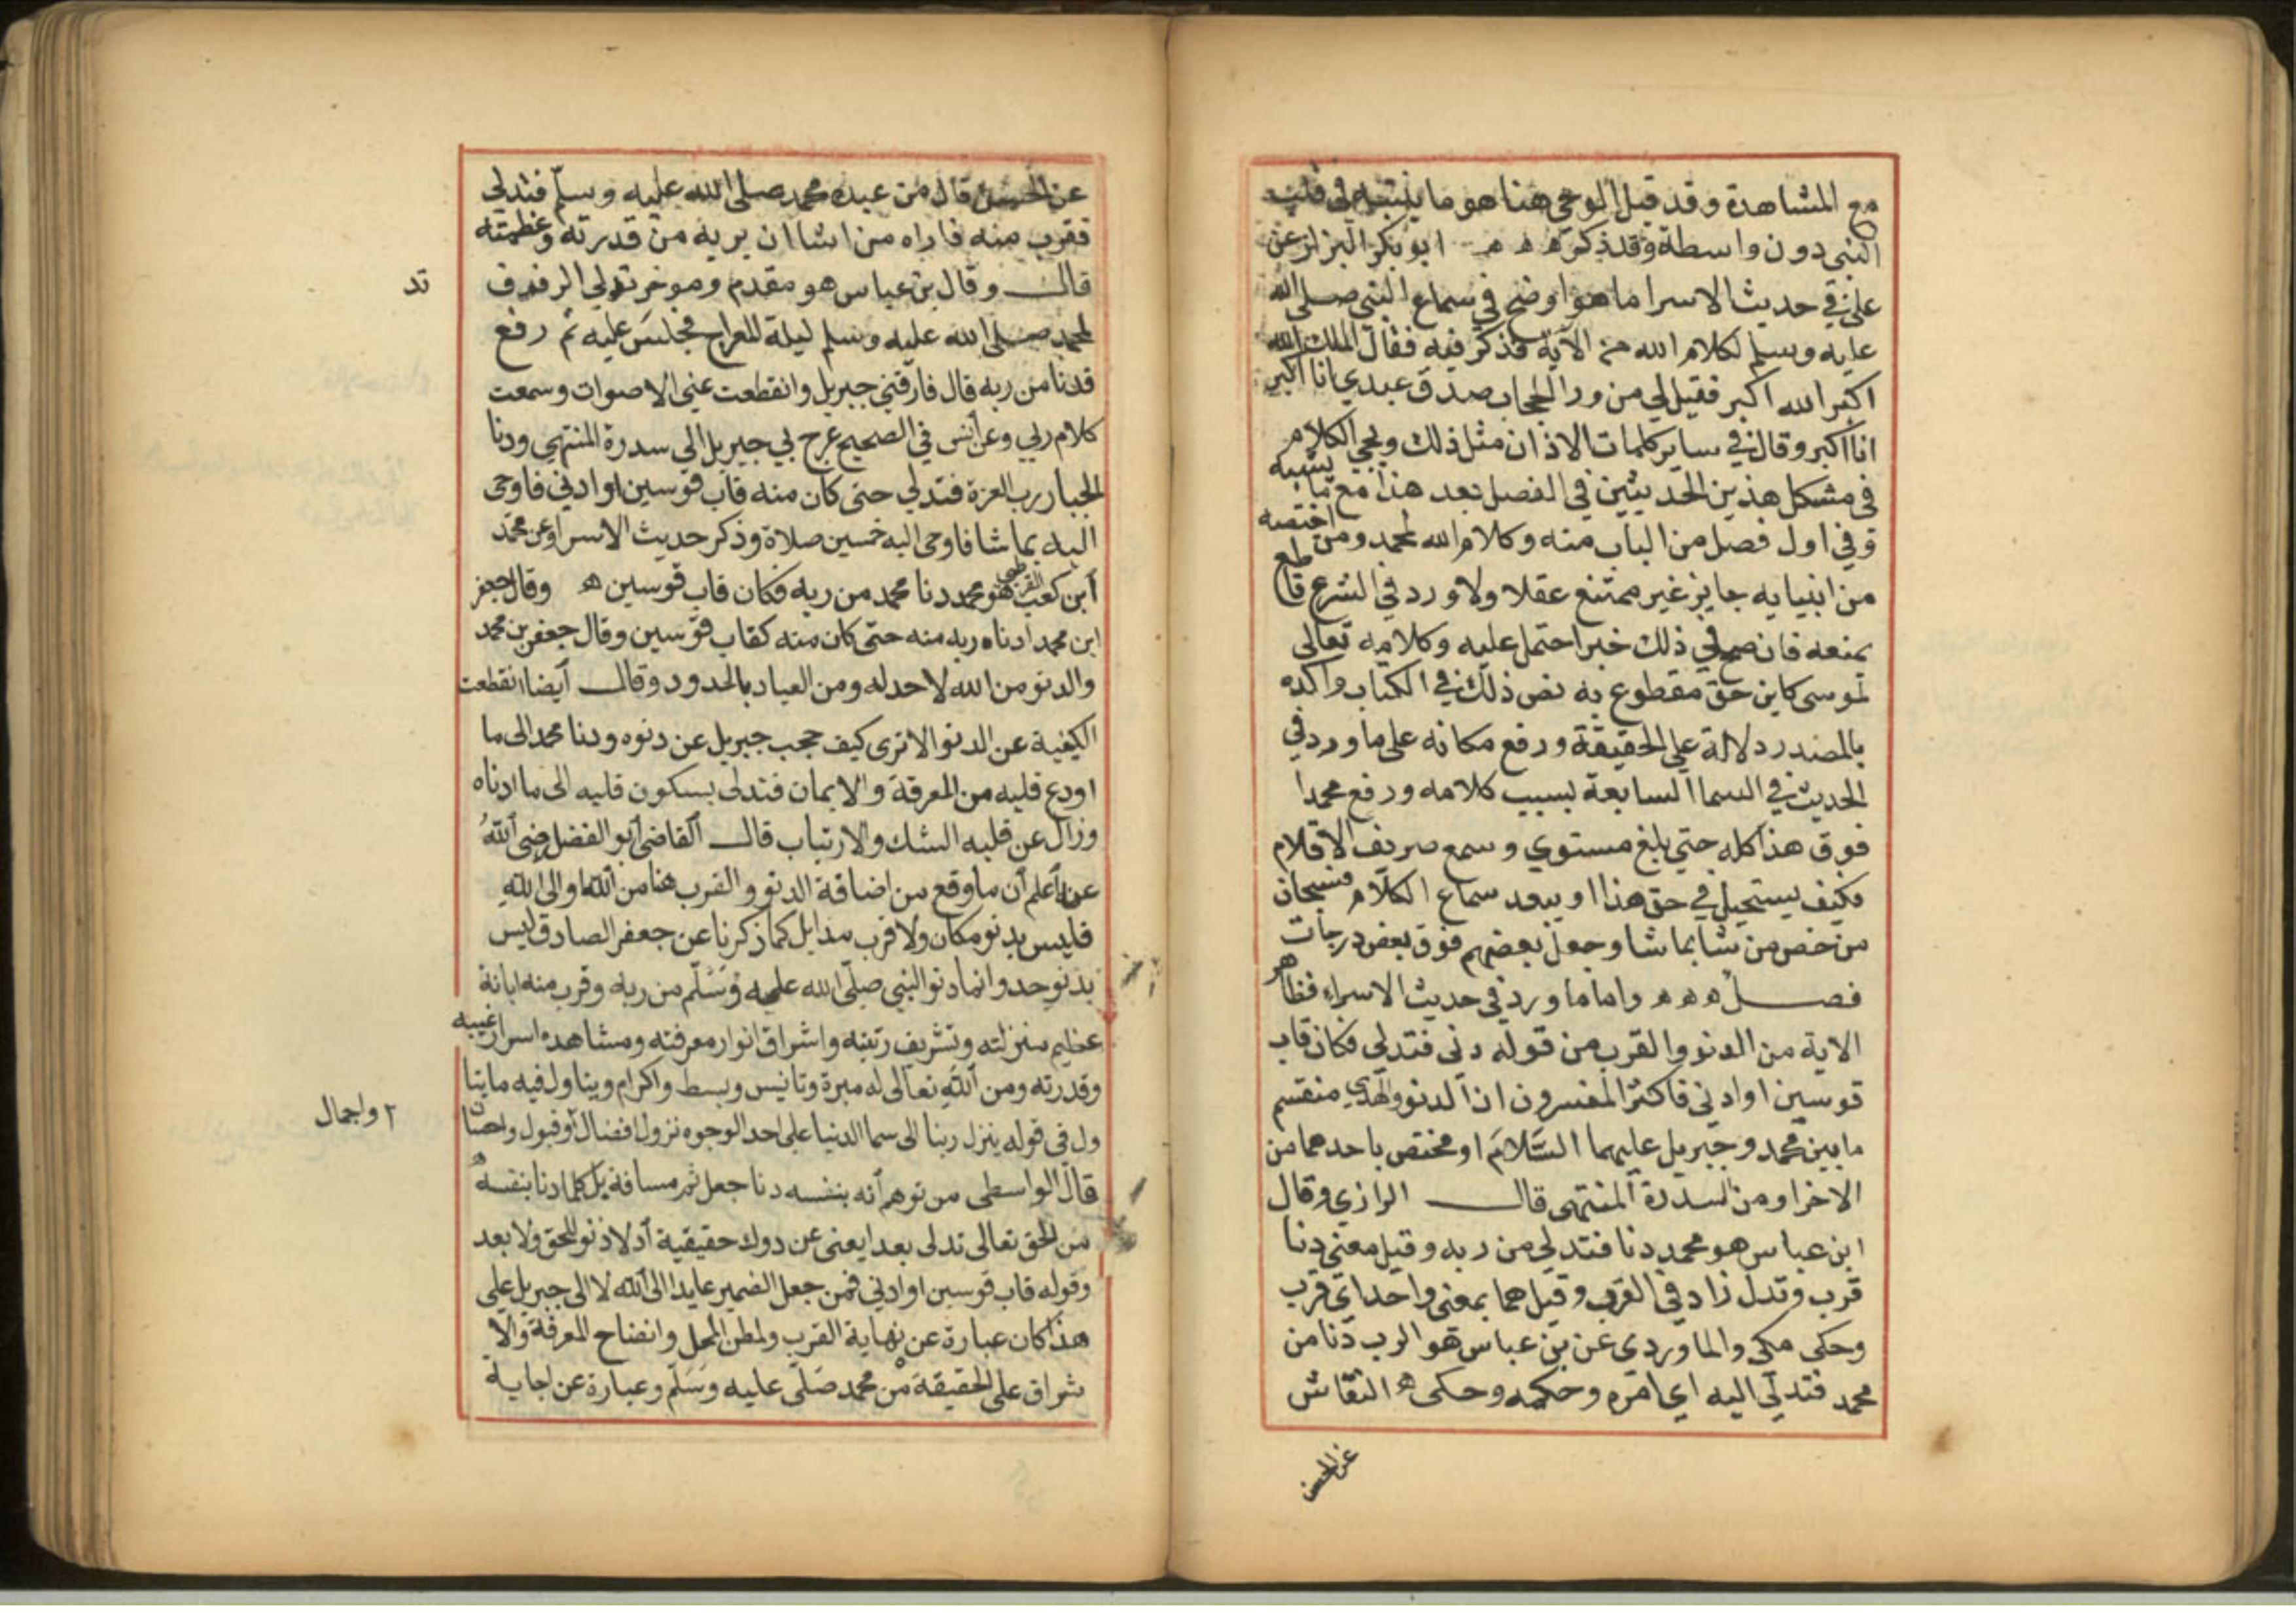 مع المشاهدة وقد قيل الوحي هنا هو ما يلقيه في قلب
النبي دون واسطة وقد ذكر ابو بكر البزار عن
علي في حديث الاسرا ما هو اوضح في سماع النبي صلى الله
عليه وسلم لكلام الله من الآية فذكر فيه فقال الملك الله
اكبر الله اكبر فقيل لي من ورا الحجاب صدق عبدي انا اكبر
انا اكبر وقال في ساير كلمات الاذان مثل ذلك ويجي الكلام
في مشكل هذين الحديثين في الفصل بعد هذا مع ما يشبهه
وفي اول فصل من الباب منه وكلام الله لمحمد ومن اختصه
من انبيايه جايز غير ممتنع عقلا ولا ورد في الشرع قاطع
يمنعه فان صح في ذلك خبر احتمل عليه وكلامه تعالى
لموسى كاين حق مقطوع به نص ذلك في الكتاب واكده
بالمصدر دلالة على الحقيقة ورفع مكانه على ما ورد في
الحديث في السما السابعة بسبب كلامه ورفع محمدا
فوق هذا كله حتي بلغ مستوي وسمع صريف الاقلام
فكيف يستحيل في حق هذا او يبعد سماع الكلام فسبحان
من خص من شا بما شا وجعل بعضهم فوق بعض درجات
فصل ه ه ه واما ما ورد في حديث الاسراء فظاهر
الاية من الدنو والقرب من قوله دنى فتدلي فكان قاب
قوسين او ادني فاكثر المفسرون ان الدنو والتدلي منقسم
ما بين محمد وجبريل عليهما السلام او مختص باحدهما من
الاخر او من السدرة المنتهى قال الرازي وقال
ابن عباس هو محمد دنا فتدلي من ربه وقيل معني دنا
قرب وتدلى زاد في القرب وقيل هما بمعنى واحد اي قرب
وحكى مكي والماوردي عن بن عباس هو الرب دنا من
محمد فتدلي اليه اي امره وحكمه وحكى ه النقاش
عن الحسن
عن الحسن قال من عبده محمد صلى الله عليه وسلم فتدلي
فقرب منه فاراه من اشا ان يريه من قدرته وعظمته
قال وقال بن عباس هو مقدم وموخر تدلي الرفرف
تد
لمحمد صلى الله عليه وسلم ليلة المعراج فجلس عليه ثم رفع
قدنا من ربه قال فارقني جبريل وانقطعت عني الاصوات وسمعت
كلام ربي وعن انس في الصحيح عرج بي جبريل الي سدرة المنتهي ودنا
الجبار رب العزة فتدلي حتى كان منه قاب قوسين او ادني فاوحى
اليه بما شا فاوحى اليه خمسين صلاة وذكر حديث الاسرا وعن محمد
ابن كعب القرظي هو محمد دنا محمد من ربه فكان قاب قوسين ه وقال جعفر
ابن محمد ادناه ربه منه حتى كان منه كقاب قوسين وقال جعفر بن محمد
والدنو من الله لا حد له ومن العباد بالحدود وقال ايضا انقطعت
الكيفية عن الدنو الا ترى كيف حجب جبريل عن دنوه ودنا محمد الى ما
اودع قلبه من المعرفة والايمان فتدلى بسكون قلبه الى ما ادناه
وزال عن قلبه الشك والارتياب قال القاضي ابو الفضل رضي الله
عنه اعلم ان ما وقع من اضافة الدنو والقرب هنا من الله او الى الله
فليس بدنو مكان ولا قرب مدا بل كما ذكرنا عن جعفر الصادق ليس
بدنو حد وانما دنو النبي صلى الله عليه وسلم من ربه وقرب منه ابانة
عظيم منزلته وتشريف رتبته واشراق انوار معرفته ومشاهدة اسرار غيبه
وقدرته ومن الله تعالى له مبرة وتانيس وبسط واكرام ويتاول فيه ما يتا
ول في قوله ينزل ربنا الى سما الدنيا على احد الوجوه نزول افضال وقبول واحسان
٢ واجمال
قال الواسطى من توهم انه بنفسه دنا جعل ثم مسافة بل كلما دنا بنفسه
من الحق تعالى تدلى بعدا يعنى عن دوك حقيقية اذ لا دنو للحق ولا بعد
وقوله قاب قوسين او ادني فمن جعل الضمير عايدا الى الله لا الى جبريل على
هذا كان عبارة عن نهاية القرب ولطف المحل وانضاح المعرفة والا
شراق على الحقيقة من محمد صلى عليه وسلم وعبارة عن اجابة